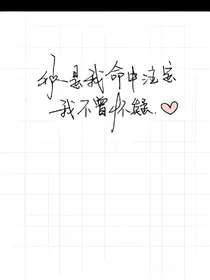 你是我命中注定
我不曾怀疑.